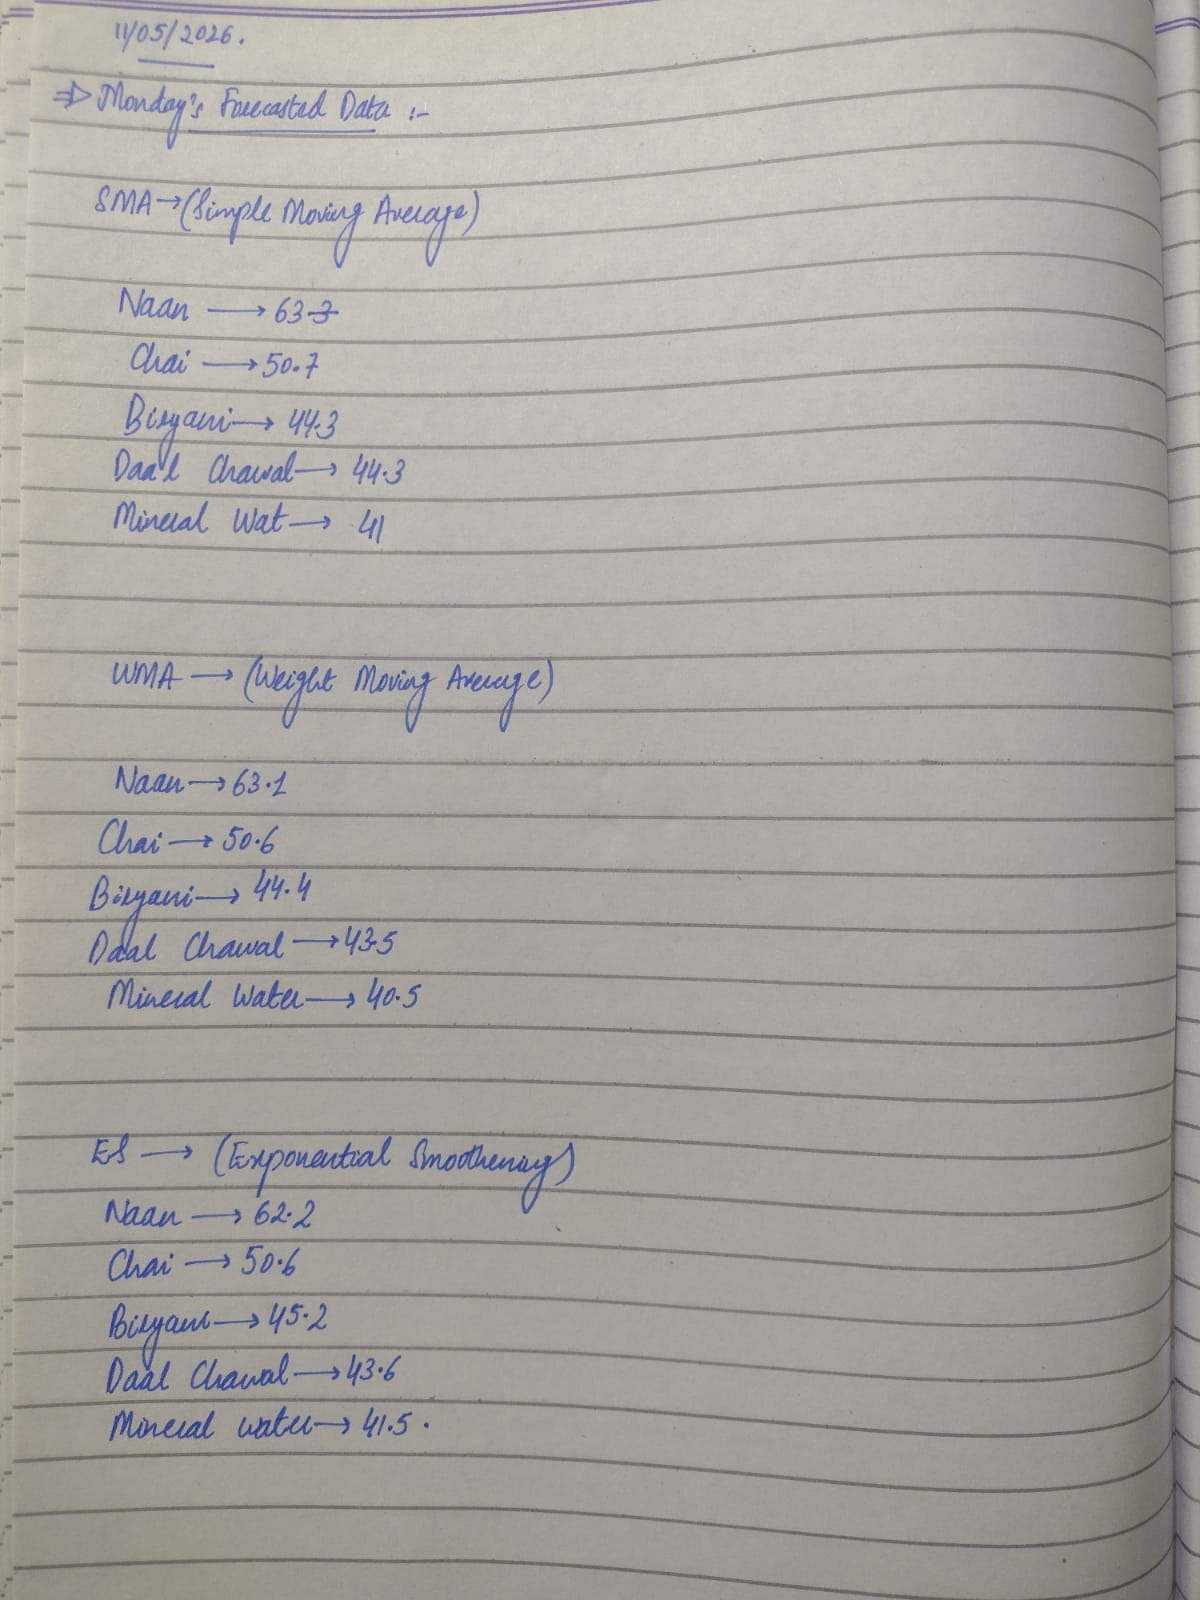 11/05/2026.
⇒ Monday's Forecasted Data :-
SMA → (Simple Moving Average)
Naan → 63.3
Chai → 50.7
Biryani → 44.3
Daal Chawal → 44.3
Mineral Wat → 41
WMA → (Weight Moving Average)
Naan → 63.1
Chai → 50.6
Biryani → 44.4
Daal Chawal → 43.5
Mineral Water → 40.5
ES → (Exponential Smoothening)
Naan → 62.2
Chai → 50.6
Biryani → 45.2
Daal Chawal → 43.6
Mineral water → 41.5.